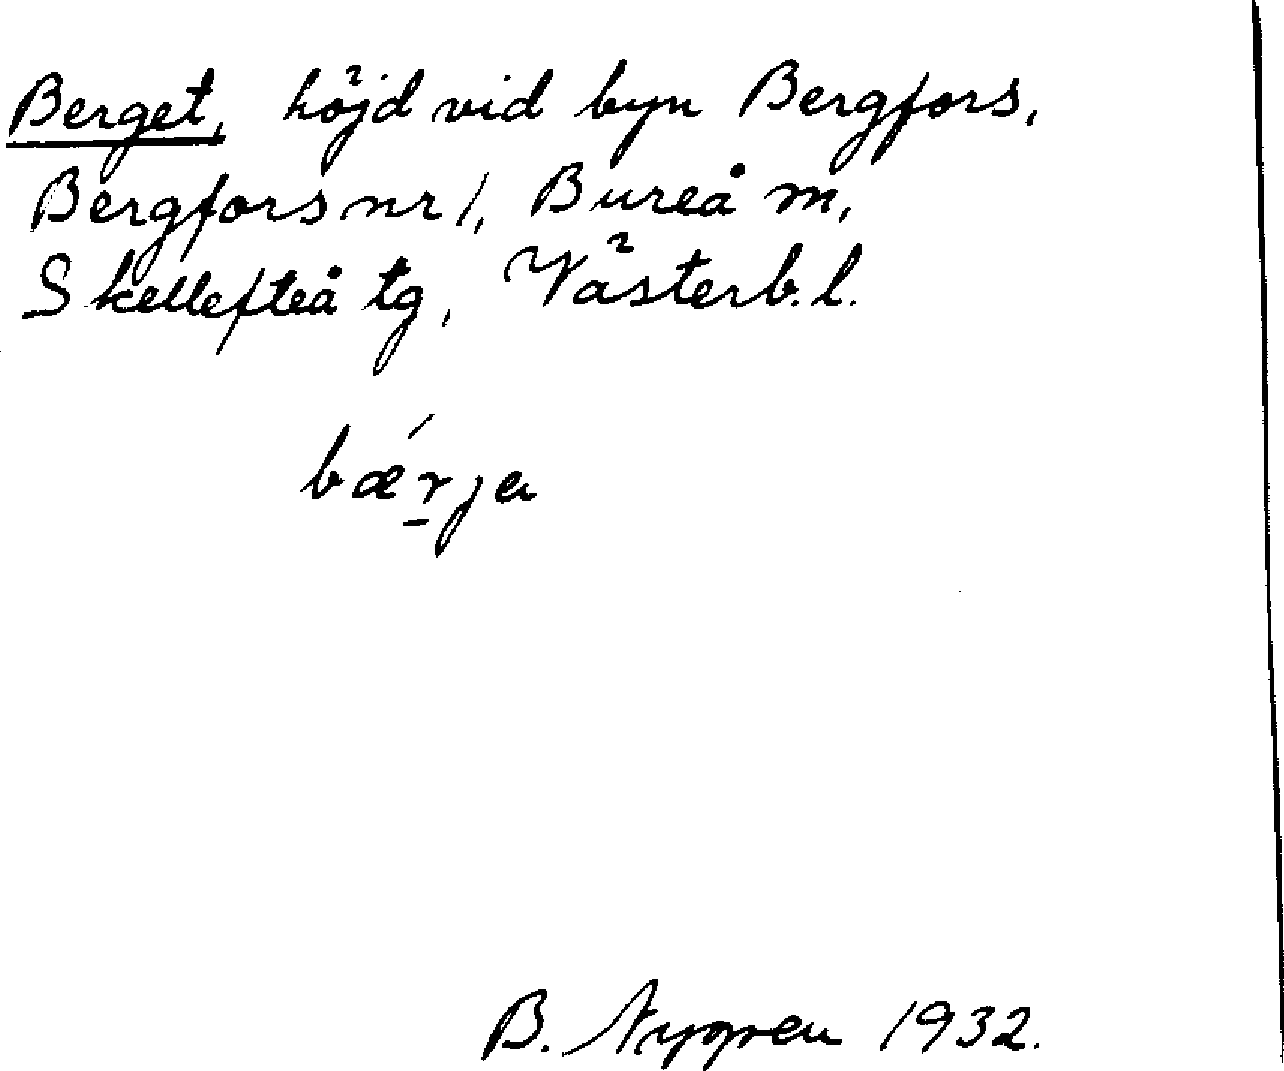 Berget, höjd vid byn Bergfors,
Bergfors nr 1, Bureå m,
Skellefteå tg, Västerb. l.
bæ´r̠ja
B. Nygren 1932.